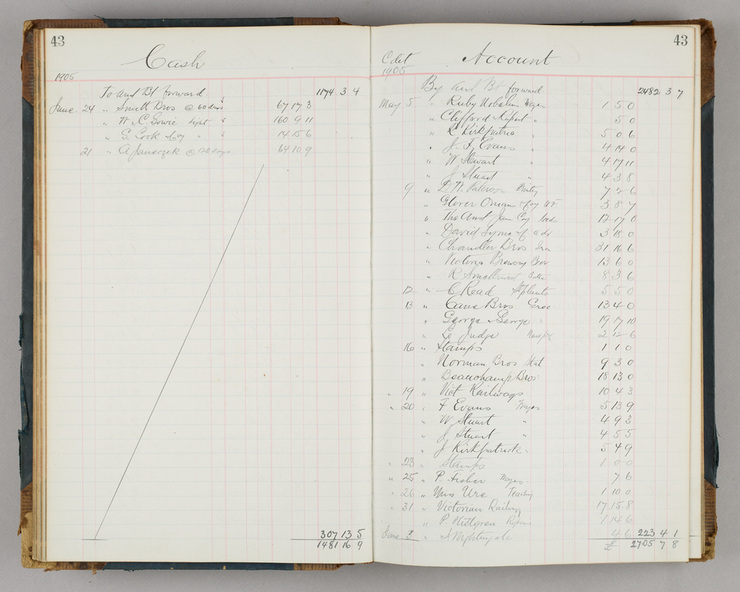 43
Cash
1905
To amt Bt forward 1174 3 4
June 24 " Smith Bros @ 67 17 3
" W. C. Gowie 160 9 11
" G. Cook 14 15 6
21 64 10 9
307 13 5
1481 16 9
43
Account
1905
By amt Bt forward 2482 3 7
May 5 " Ruby 1 5 0
" Clifford 5 0
" Kirkpatrick 5 0 6
" J. F. Evans " 4 14 0
" W Stewart " 4 17 11
" J. Stuart " 4 3 8
9 "
" Glover Onian 3 8 7
" 12 17 0
" David Syme 3 18 0
" Chandler Bros 31 16 6
" Victoria Brewing 13 6 0
" R Smallwood 8 3 6
12 " C Read Plants 5 5 0
13 " Cave Bros Groc 13 4 0
" George George " 19 17 10
" Judge 2 2 6
16 " Stamps 1 1 0
" Norman Bros Stat 9 3 0
" Beauchamp Bros 18 13 0
" 19 " Vict Railways 10 4 3
" 20 " F Evans Wages 5 13 9
" W Stuart " 4 9 3
" J Stuart " 4 5 5
" J Kirkpatrick " 5 4 9
" 23 " Stamps 1 0 0
" 25 " P. Fisher Wages 7 6
" 26 " Miss Ure 1 10 0
" 31 " Victorian Railway 17 15 8
" P. 1 14 6
June 3 " Nightingale 4 6 223 4 1
£ 2705 7 8